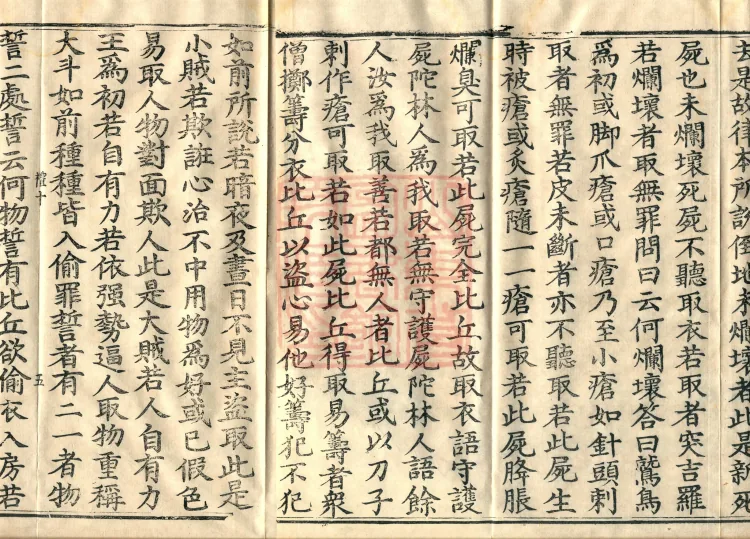 去是故律本所説倒地未爛壞者此是新死
屍也未爛壞死屍不聽取衣若取者突吉羅
若爛壞者取無罪問曰云何爛壞答曰鷲鳥
爲初或脚爪瘡或口瘡乃至小瘡如針頭刺
取者無罪若皮未斷者亦不聽取若此屍生
時被瘡或灸瘡隨一一瘡可取若此屍膖脹
爛臭可取若此屍完全比丘故取衣語守護
屍陀林人爲我取若無守護屍陀林人語餘
人汝爲我取善若都無人者比丘或以刀子
刺作瘡可取若如此屍比丘得取易籌者衆
僧擲籌分衣比丘以盜心易他好籌犯不犯
如前所説若暗夜及晝日不見主盜取此是
小賊若欺誑心治不中用物爲好或巳假色
易取人物對面欺人此是大賊若人自有力
王爲初若自有力若依强勢逼人取物重稱
大斗如前種種皆入偷罪誓者有二一者物
禮十
五
誓二處誓云何物誓有比丘欲偷衣入房若